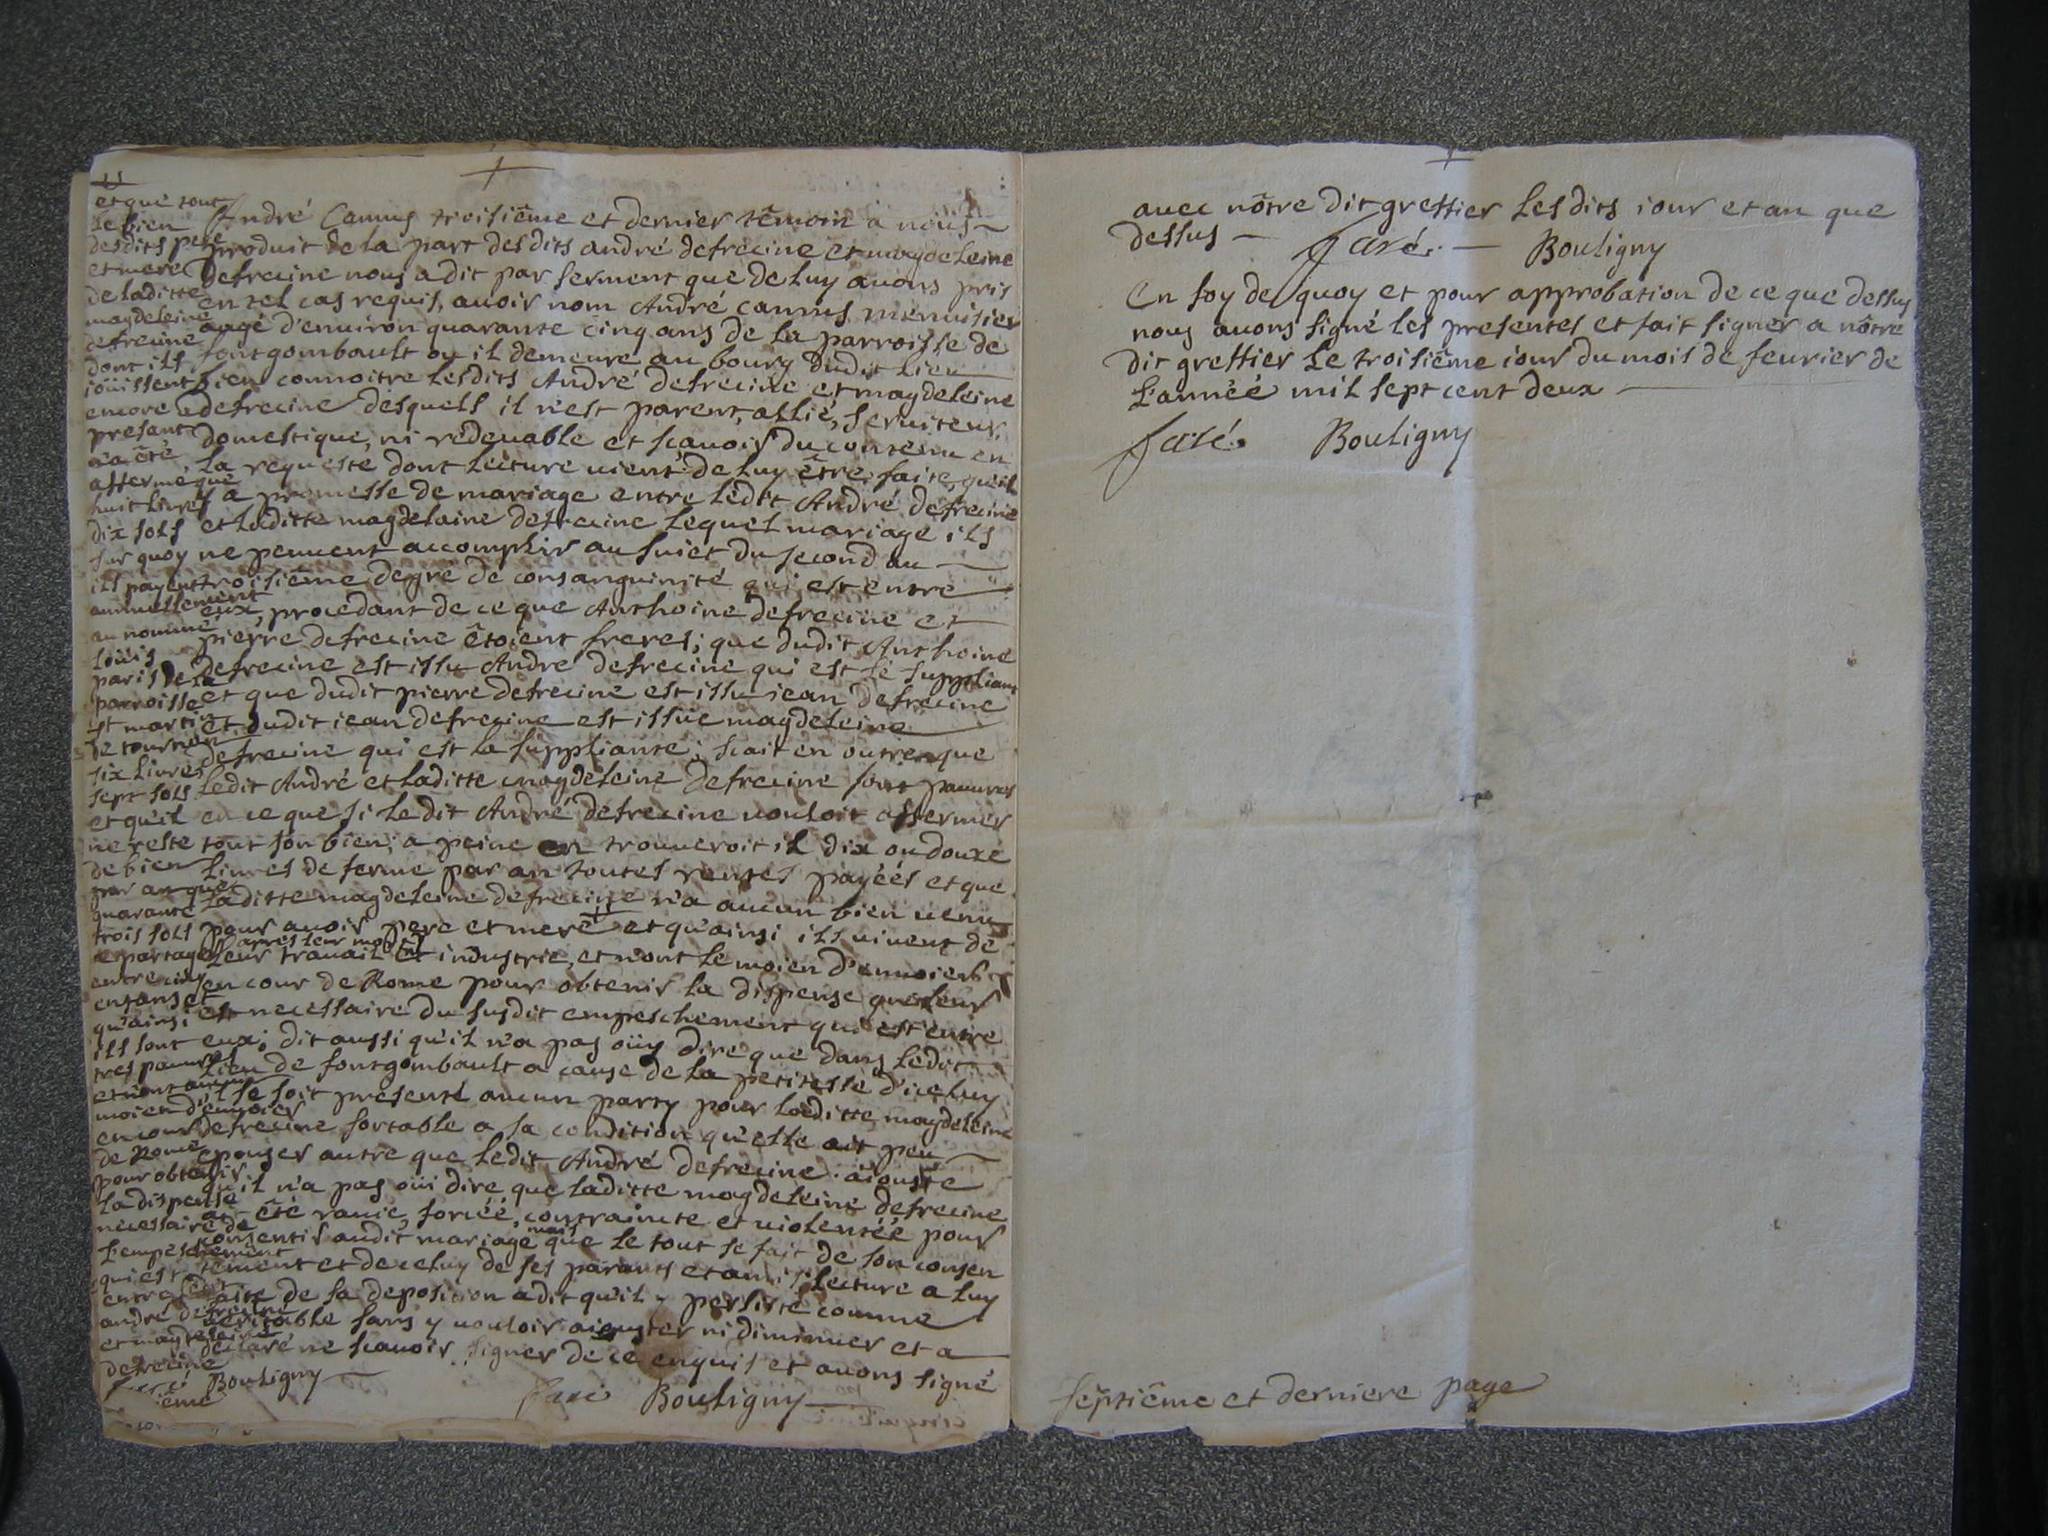 André Camus troisiême et dernier têmoin a nous
produit de la part desdits andré defrecine et magdeleine
defrecine nous a dit par serment que de luy avons pris
en tel cas requis, avoir nom André camus menuisier
aagé d'environ quarante cinq ans de la parroisse de
fontgombault ou il demeure au bourg dudit lieu
bien connoitre lesdits André defrecine et magdeleine
defrecine desquels il n'est parent, allié, serviteur,
domestique, ni redevable et scavoir du contenu en
la requeste dont lecture vient de luy être faite, qu'il
y a promesse de mariage entre ledit André defrecine
et laditte magdelaine defrecine lequel mariage ils
ne peuvent accomplir au suiet du second au
troisiême degré de consanguinité qui est entre
eux, procedant de ce que Anthoine defrecine et
pierre defrecine êtoient freres; que dudit Anthoine
defrecine est issu André defrecine qui est le suppliant
et que dudit pierre defrecine est issu iean defrecine
et dudit iean defrecine est issüe magdeleine
defrecine qui est la suppliante; scait en outre que
ledit André et laditte magdeleine defrecine sont pauvres
en ce que si ledit André defrecine vouloit affermer
tout son bien, a peine en trouveroit il dix ou douze
livres de ferme par an toutes rentes payéés et que
laditte magdeleine defrecine n'a aucun bien venu
pour avoir pere et mere et qu'ainsi ils vivent de
leur travail et industrie, et n'ont le moien d'envoier
en cour de Rome pour obtenir la dispense que leur
est necessaire du susdit empeschement qui est entre
eux; dit aussi qu'il n'a pas oüy dire que dans ledit
lieu de fontgombault a cause de la petitesse d'iceluy
il se soit presenté aucun party pour laditte magdeleine
defrecine sortable a sa condition qu'elle ait peu
epouser autre que ledit André defrecine. aiouste
qu'il n'a pas oüi dire que laditte magdeleine defrecine
ait êté ravie, forcéé, contraincte et violentéé pour
consentir audit mariage mais que le tout se fait de son consen
tement et de celuy de ses parants et amis; lecture a luy
faite de sa deposition a dit qu'il y persiste comme
veritable sans y vouloir aiouster ni diminuer et a
declaré ne scavoir signer de ce enquis et avons signé
faré Bouligny
et que tout
le bien
desdits pere
et mere
de laditte
magdeleine
defrecine
dont ils
ioüissent
encore a
presant
n'a êté
affermé que
huit livres
dix sols
sur quoy
ils payent
annuellement
au nommé
loüis
paris de la
parroisse
st martin
de tournon
six livres
sept sols
et qu'il
ne reste
de bien
par an que
quarante
trois sols
a partager
apres leur mort
entre cinq
enfans et
qu'ainsi
ils sont
tres pauvres
et n'ont aucun
moien d'envoier
en cour
de Rome
pour obtenir
la dispense
necessaire de
l'empeschement
qui est
entre ledit
andré defrecine
et magdeleine
defrecine
faré Bouligny
avec nôtre dit greffier lesdits iour et an que
dessus faré. Bouligny
En foy de quoy et pour approbation de ce que dessus
nous avons signé les presentes et fait signer a nôtre
dit greffier le troisiême iour du mois de fevrier de
l'année mil sept cent deux
faré. Bouligny
septiême et derniere page